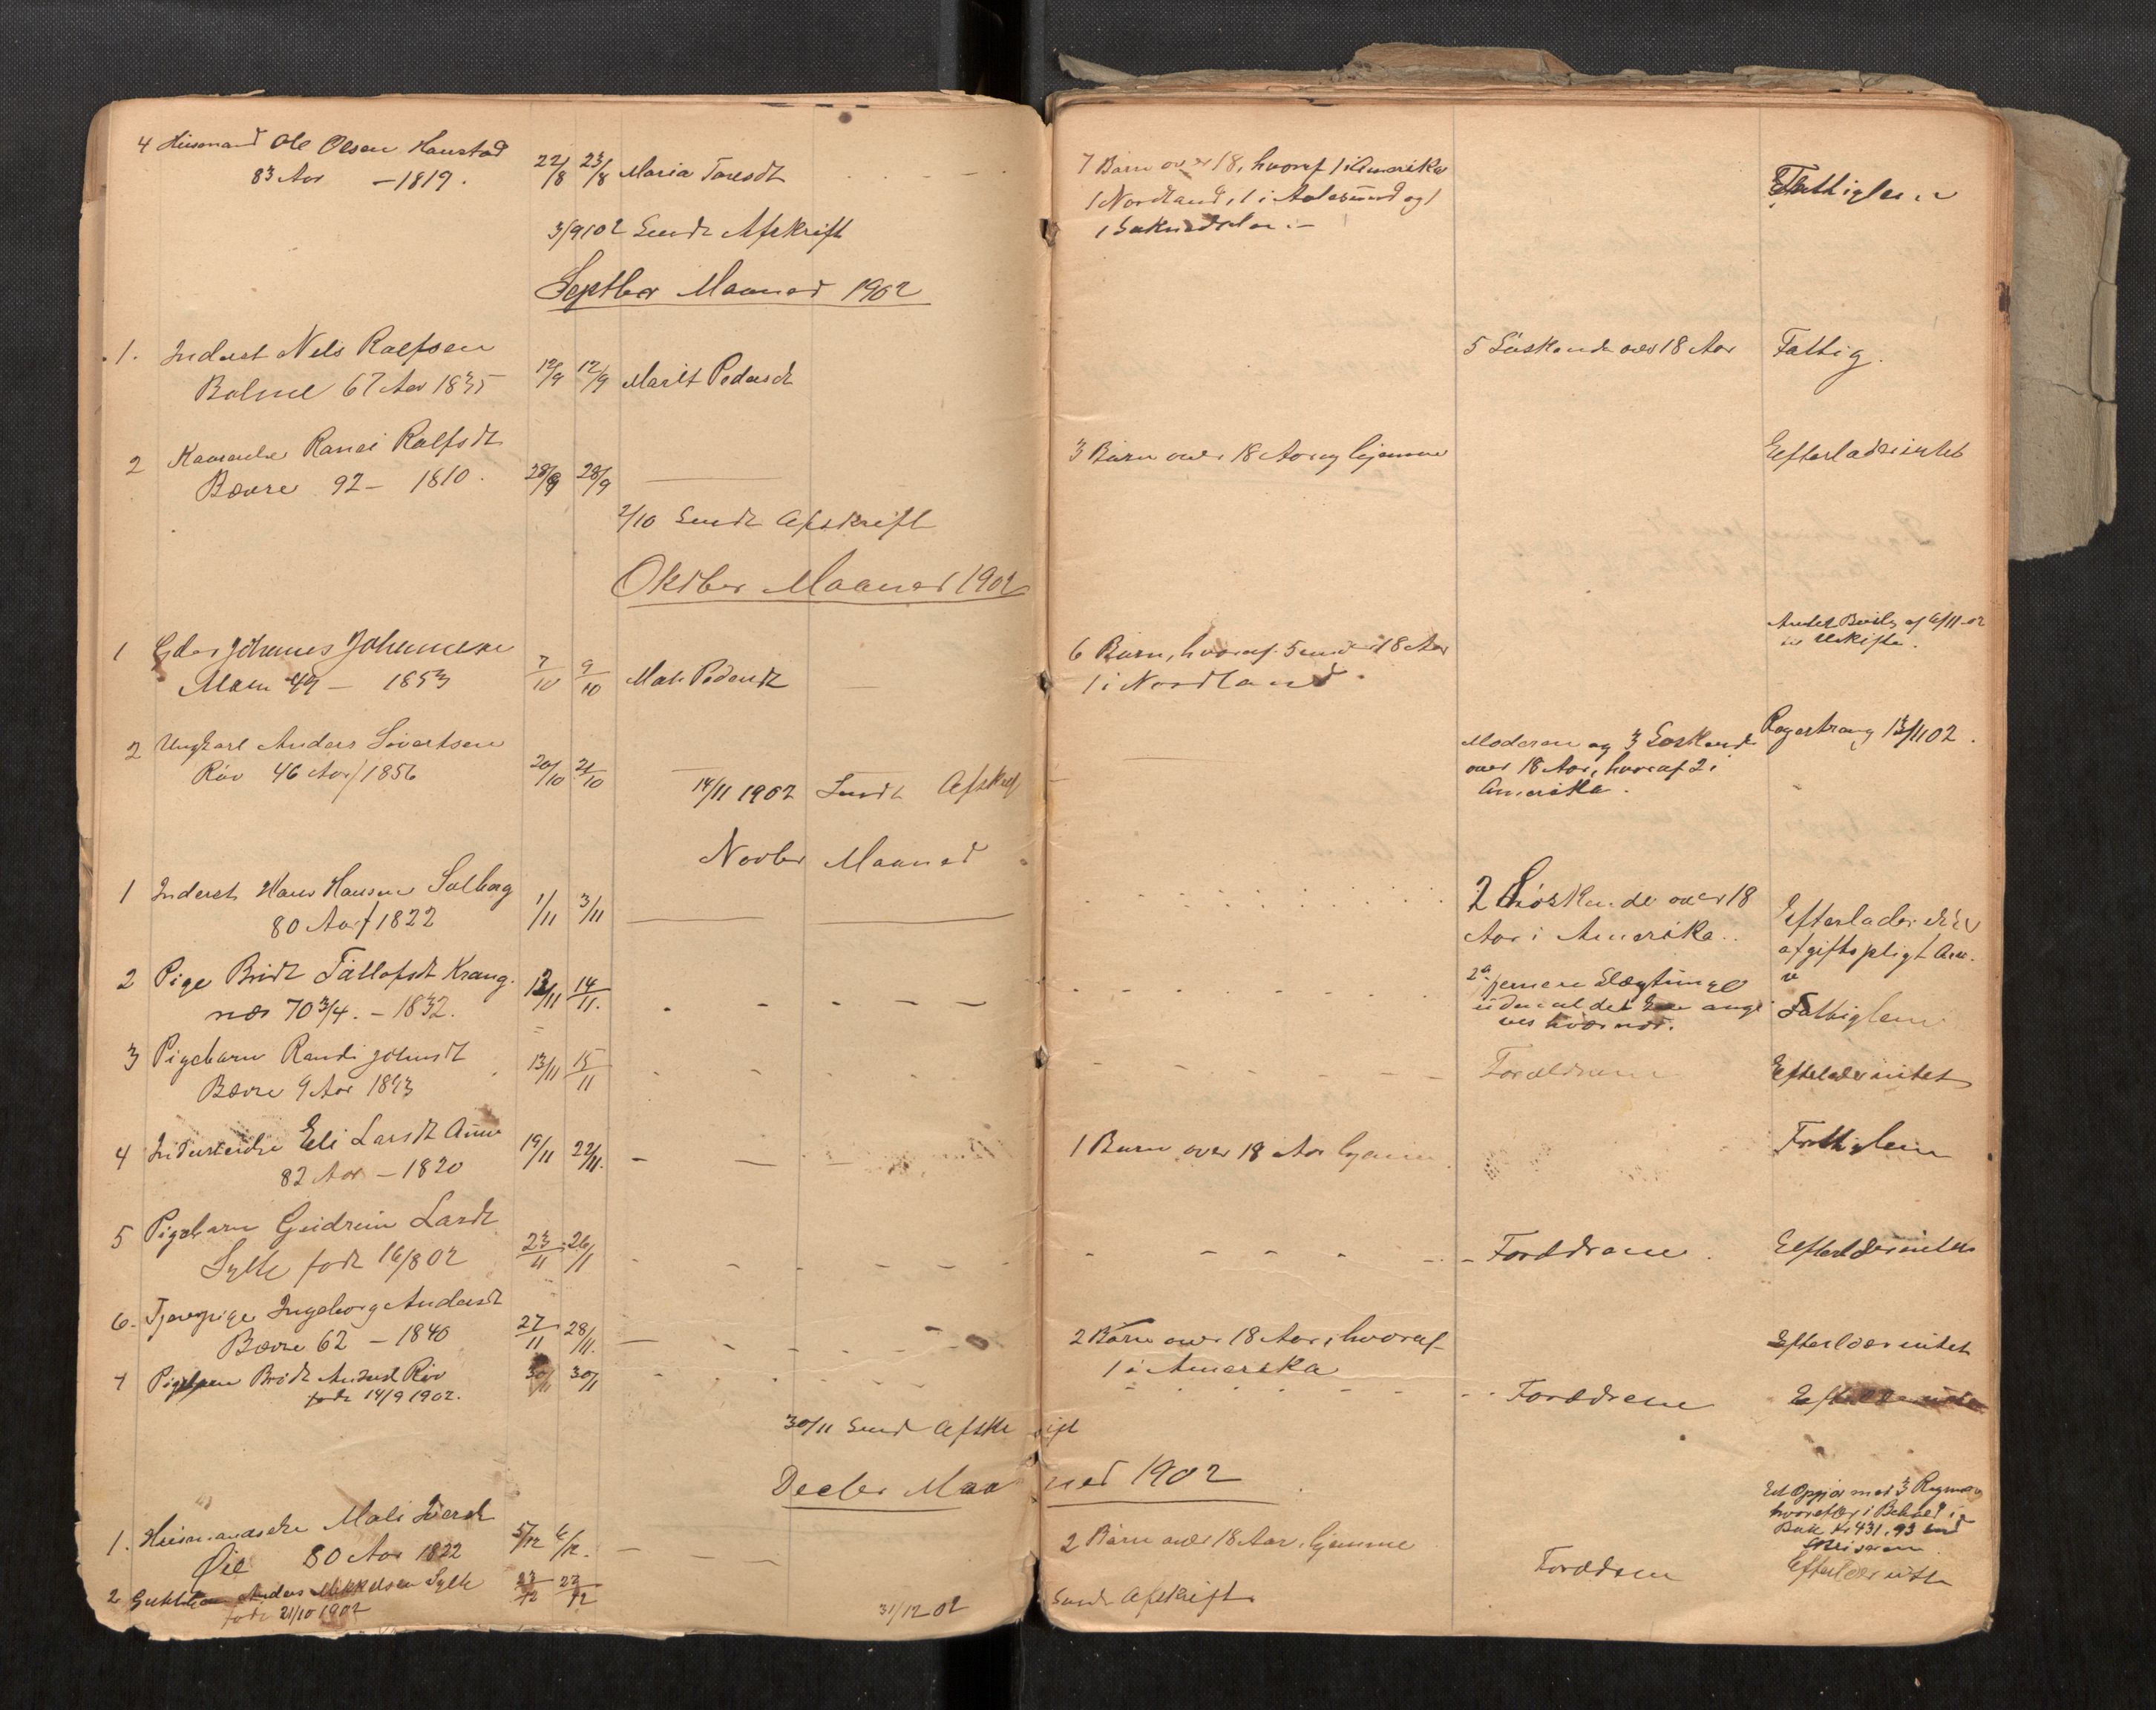 4 Husmand Ole Olsen Hanstad
83 Aar – 1819.
22/8 23/8 Maria Toresdt
7 Børn over 18, hvoraf 1 i Amerika
1 Nordland, 1 i Aalesund og
Fattiglem
3/9 02 Sendt Afskrift
Septber Maaned 1902
1. Inderst Nels Rolfsen
Bolme 67 Aar 1835
12/9 12/9 Marit Pedersdt
5 Søskende over 18 Aar
Fattig.
2 Kaarenke Ranei Rolfsdt
Bævre 92 – 1810.
28/9 28/9
3 Børn over 18 Aar og hjemme
Efterlader intet
2/10 Sendt Afskrift
Oktber Maaned 1902
1 Gdbr Johannes Johannesen
Moen 49 – 1853
7/10 9/10 Mali Pedersdt
6 Børn, hvoraf 5 under 18 Aar
1 i Nordland.
Anden Bevilg af 6/11-02
Uskifte.
2 Ungkarl Anders Sivertsen
Røv 46 Aar / 1856
20/10 21/10
Moderen og 3 Søskende
over 18 Aar, hvoraf 2 i
Amerika.
13/11 02.
14/11 1902 Sendt Afskrift
Novber Maaned
1 Inderst Hans Hansen Solberg
80 Aar / 1822
1/11 3/11
2 Søskende over 18
Aar i Amerika.
Efterlader
afgiftspligt
2 Pige Bridt Tællefsdt Krang-
næs 70 3/4. – 1832.
13/11 14/11.
fjernere Slægtninge
uden at det kan angi
ves hvor nær.
Fattiglem
3 Pigebarn Randi Johnsdt
Bævre 9 Aar 1893
13/11 15/11
Forældrene
Efterlader intet
4 Inderstenke Eli Larsdt Aune
82 Aar – 1820
19/11 22/11.
1 Barn over 18 Aar hjemme
Fattiglem
5 Pigebarn Gudrun Larsdt
Sylte født 16/8 02
23/11 26/11
Forældrene.
Efterlader intet
6. Tjenepige Ingeborg Andersdt
Bævre 62 – 1840
27/11 28/11.
2 Børn over 18 Aar, hvoraf
1 i Amerika
Efterlader intet
7 Pigebarn Bridt Andersdt Røv
født 14/9 1902.
30/11 30/11
Forældrene
Efterlader intet
30/11 Sendt Afskrift
Decber Maaned 1902
1. Husmandsenke Mali Siversdt
Øie 80 Aar 1822
5/12 6/12.
2 Børn over 18 Aar, hjemme
hvorefter i Behold i
Bok Kr 431,93
2 Guttebarn Anders Mikkelsen Sylte
født 21/10 1902
23/12 27/12
Forældrene
Efterlader intet
31/12 02 Sendt Afskrift